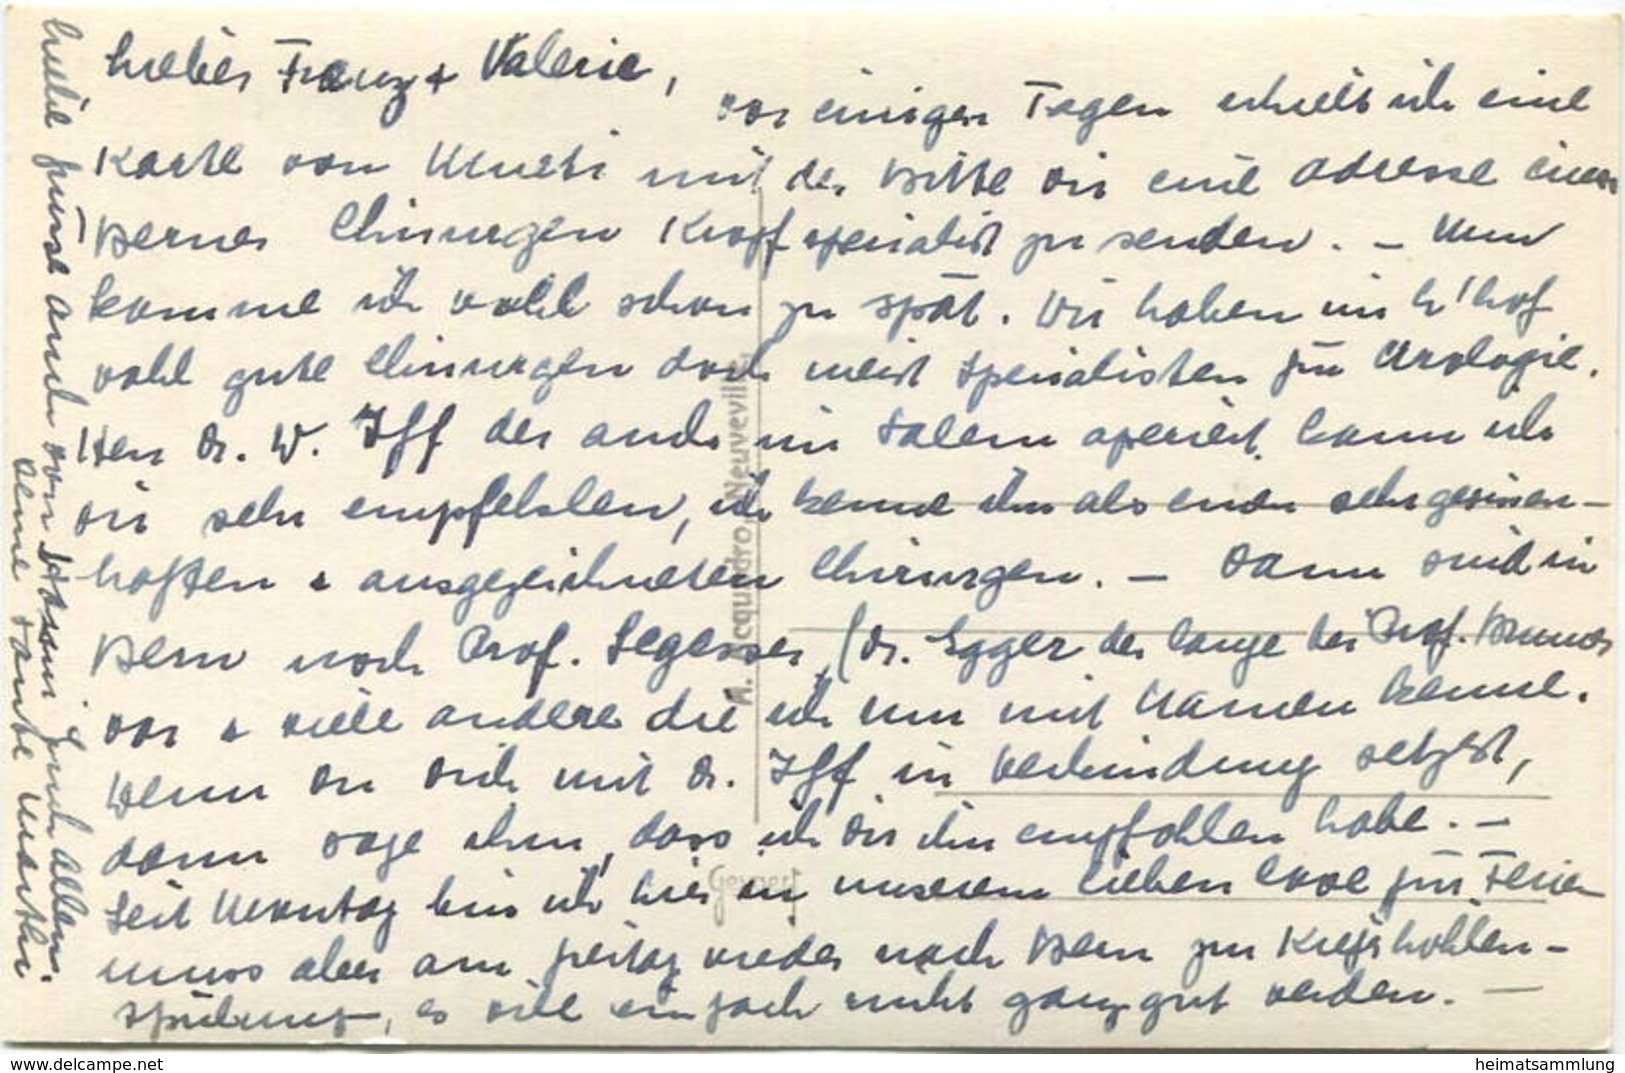 Lieber Franz + Valerie,
vor einigen Tagen erhielt ich eine
Karte von Mueti mit der Bitte dir eine Adresse eines
Berner Chirurgen Kropfspezialist zu senden. – Nun
komme ich wohl schon zu spät. Wir haben im L'hof
wohl gute Chirurgen doch meist Spezialisten für Urologie.
Herr Dr. W. Iff der auch im Salem operiert kann ich
dir sehr empfehlen, ich kenne ihn als einen sehr gewissen-
haften & ausgezeichneten Chirurgen. – Dann sind in
Bern noch Prof. Segesser, (Dr. Egger der lange bei Prof. Brunner
war & viele andere die ich nur mit Namen kenne.
Wenn du dich mit Dr. Iff in Verbindung setzest,
dann sage ihm, dass ich dir ihn empfohlen habe. –
Seit Montag bin ich hier in unserem lieben für Ferien
muss aber am Freitag wieder nach Bern zur Kieferhöhlen-
spülung, es will einfach nicht ganz gut werden. –
Liebe Grüsse auch von Euch allen.
Deine Tante Marthi
Jacquindro, Neuveville
Gevaert
delcampe.net
heimatsammlung